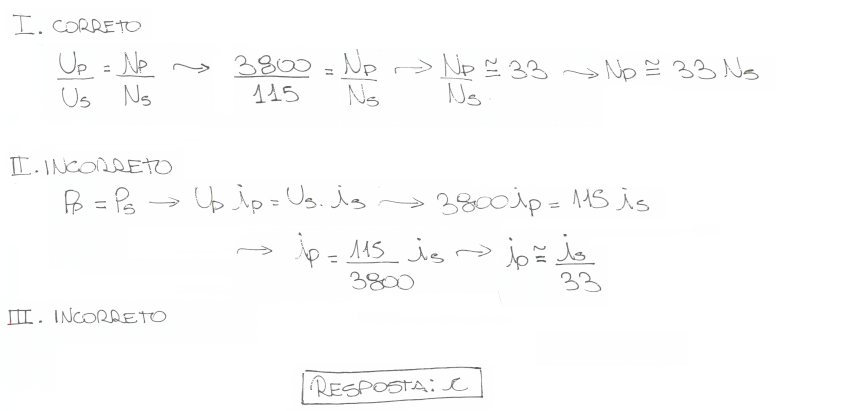 I. CORRETO
Up/Us = Np/Ns → 3800/115 = Np/Ns → Np/Ns ≅ 33 → Np ≅ 33 Ns
II. INCORRETO
Pp = Ps → Up ip = Us . is → 3800 ip = 115 is
→ ip = 115/3800 is → ip ≅ is/33
III. INCORRETO
RESPOSTA: C